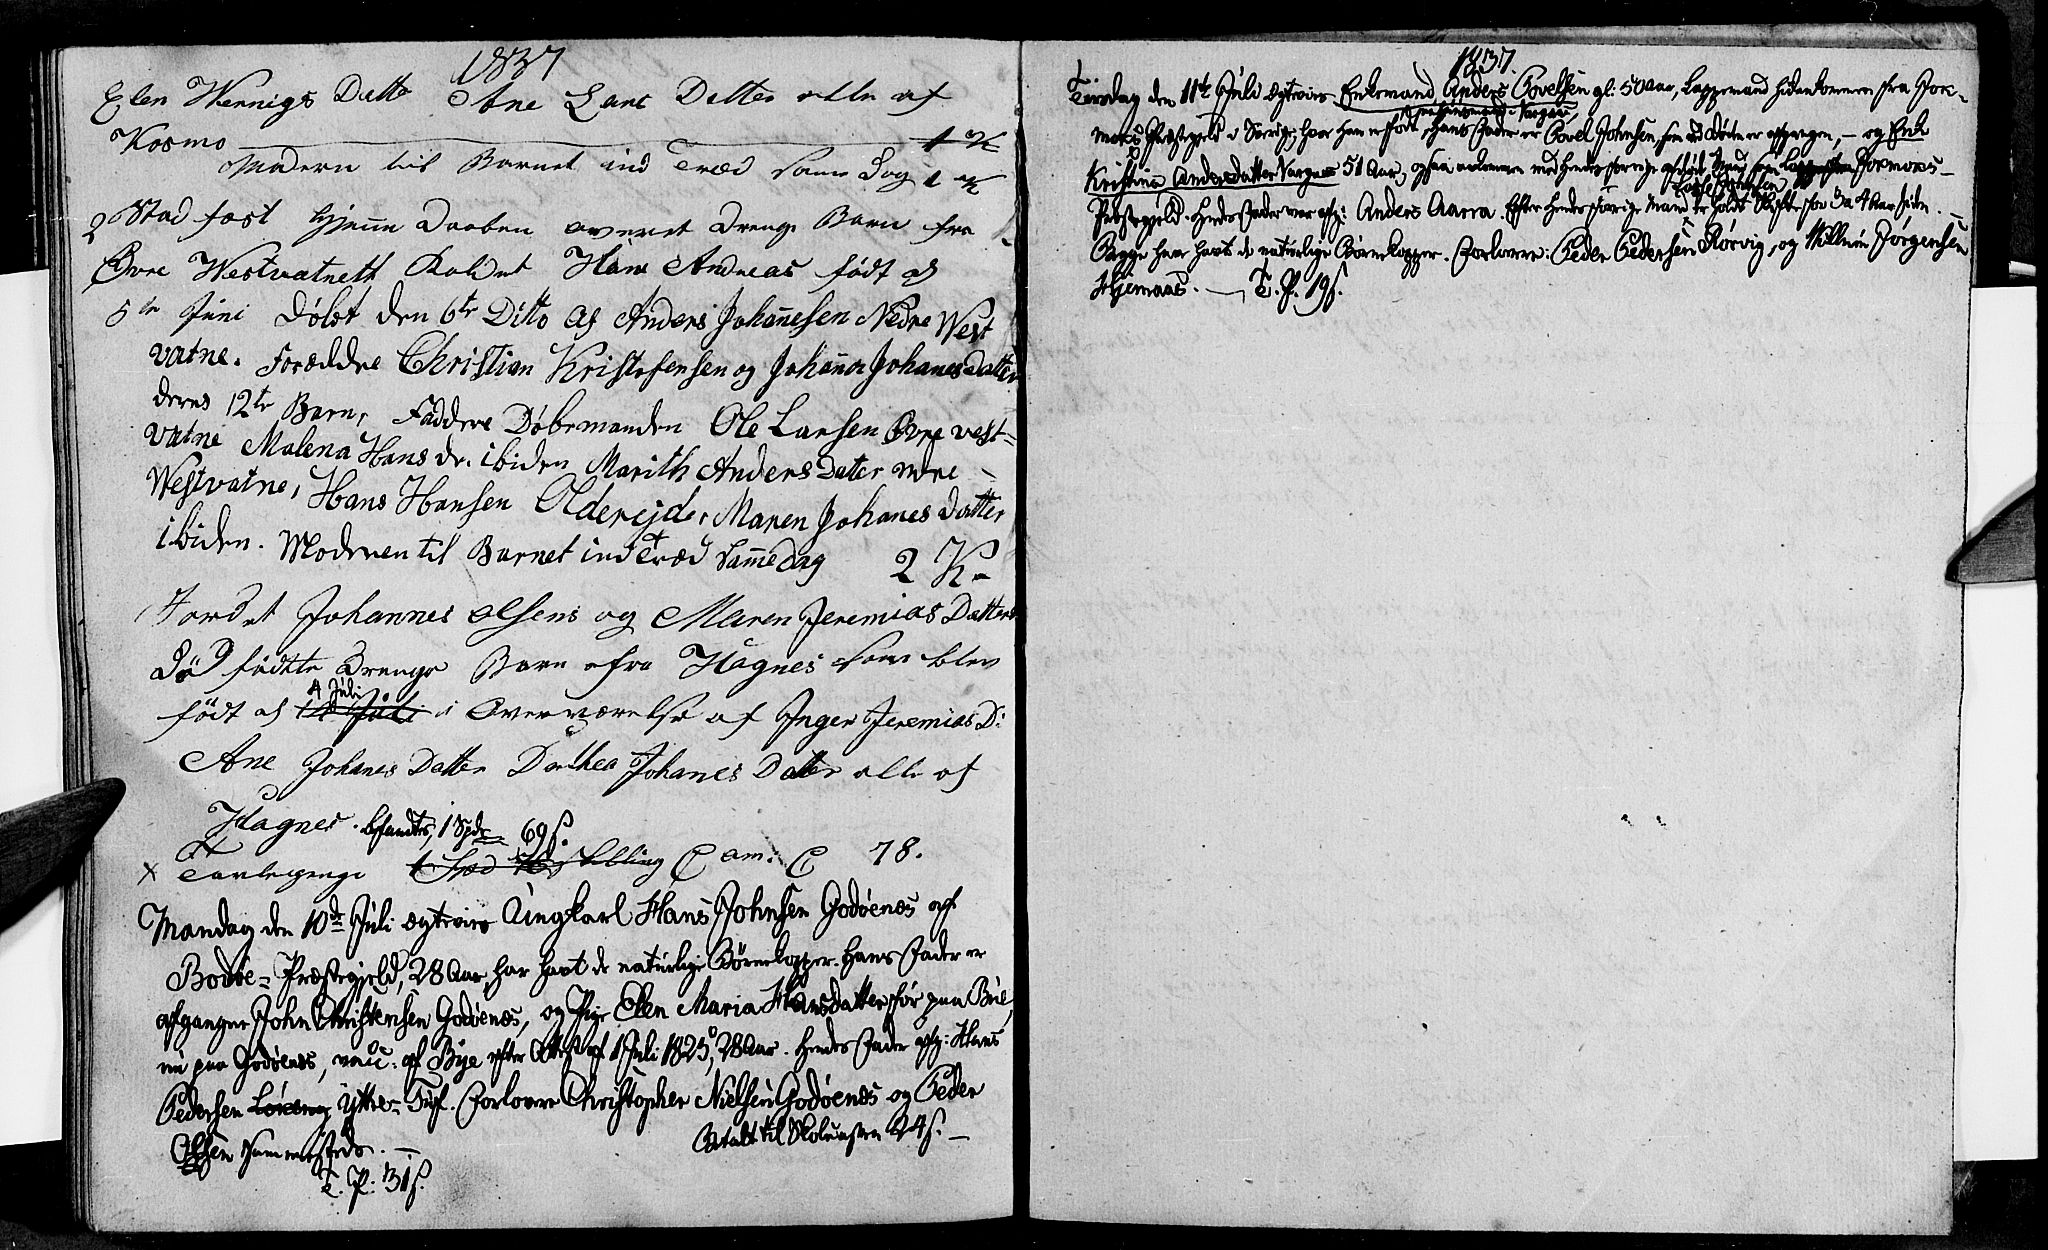 1837
Elen Wernigs Datte Ane Lars Datter alle af
Kosmo 1 K
Modern til Barnet ind Træd Same Dag 1 K
2 Stad fæst hjeme Daaben overet Drenge Barn fra
Øvre Westvatnett Kaldet Hans Andreas født d
5te Juni Døbt den 6te Ditto af Anders Johannesen Nedre West
vatne. Forældre Christian Kristofensen og Johanna Johanes Datter
deres 12te Barn, Faddere Døbemanden Ole Larsen Øvre vest=
vatne Malena Hans dr. ibiden Marith Anders Datter
Westvatne, Hans Hansen Oldereide, Maren Johanes Datter
ibiden. Moderen til Barnet ind Træd Samme Dag 2 K
Jordet Johannes Olsens og Maren Jeremias Datters
død fødtte Drenge Barn fra Hagnes som blev
født d 4 Juli i Overværelse af Inger Jeremias D:
Ane Johanes Datter Dorthea Johanes Datter alle af
Hagnes. 1 Spd 69 ſ.
x Tavlepenge 1 Spd Skilling 78.
Mandag den 10de Juli Ungkarl Hans Johnsen Godøenæs af
Bodøe=Præstegjeld, 28 Aar, har havt de naturlige Børnekopper. Hans Fader er
afgangne John Christensen Godøenæs, og Pige Elen Maria Hansdatter før paa Bue,
nu paa Godøenæs, vacc. af Bye efter Attest af 1 Juli 1825, 28 Aar. Hendes Fader afg: Hans
Pedersen Yttre= Forlovere Christopher Nielsen Godøenæs og Peder
Olsen
Betalt til Skolecassen 24 ſ. —
T. P: 31 ſ.
1837.
Tirsdag den 11te Juli Enkemand Anders Povelsen gl: 50 Aar, Lappemand hidenkommen fra Jon-
Præstegjeld i Sverige, hvor han er født, Hans Fader er Povel Johnsen, — og Enk
Kristina Andersdatter 51 Aar, ogsaa
Præstegjeld. Hendes Fader var afg: Anders Aarra. Efter Hendes forrige Mand er holdt Skifte for 3 a 4 Aar siden. —
Begge har havt de naturlige Børnekopper. Forlovere: Peder Pedersen Rørvig, og Willum Jørgensen
Hjemaas. — T. P. 19 ſ.